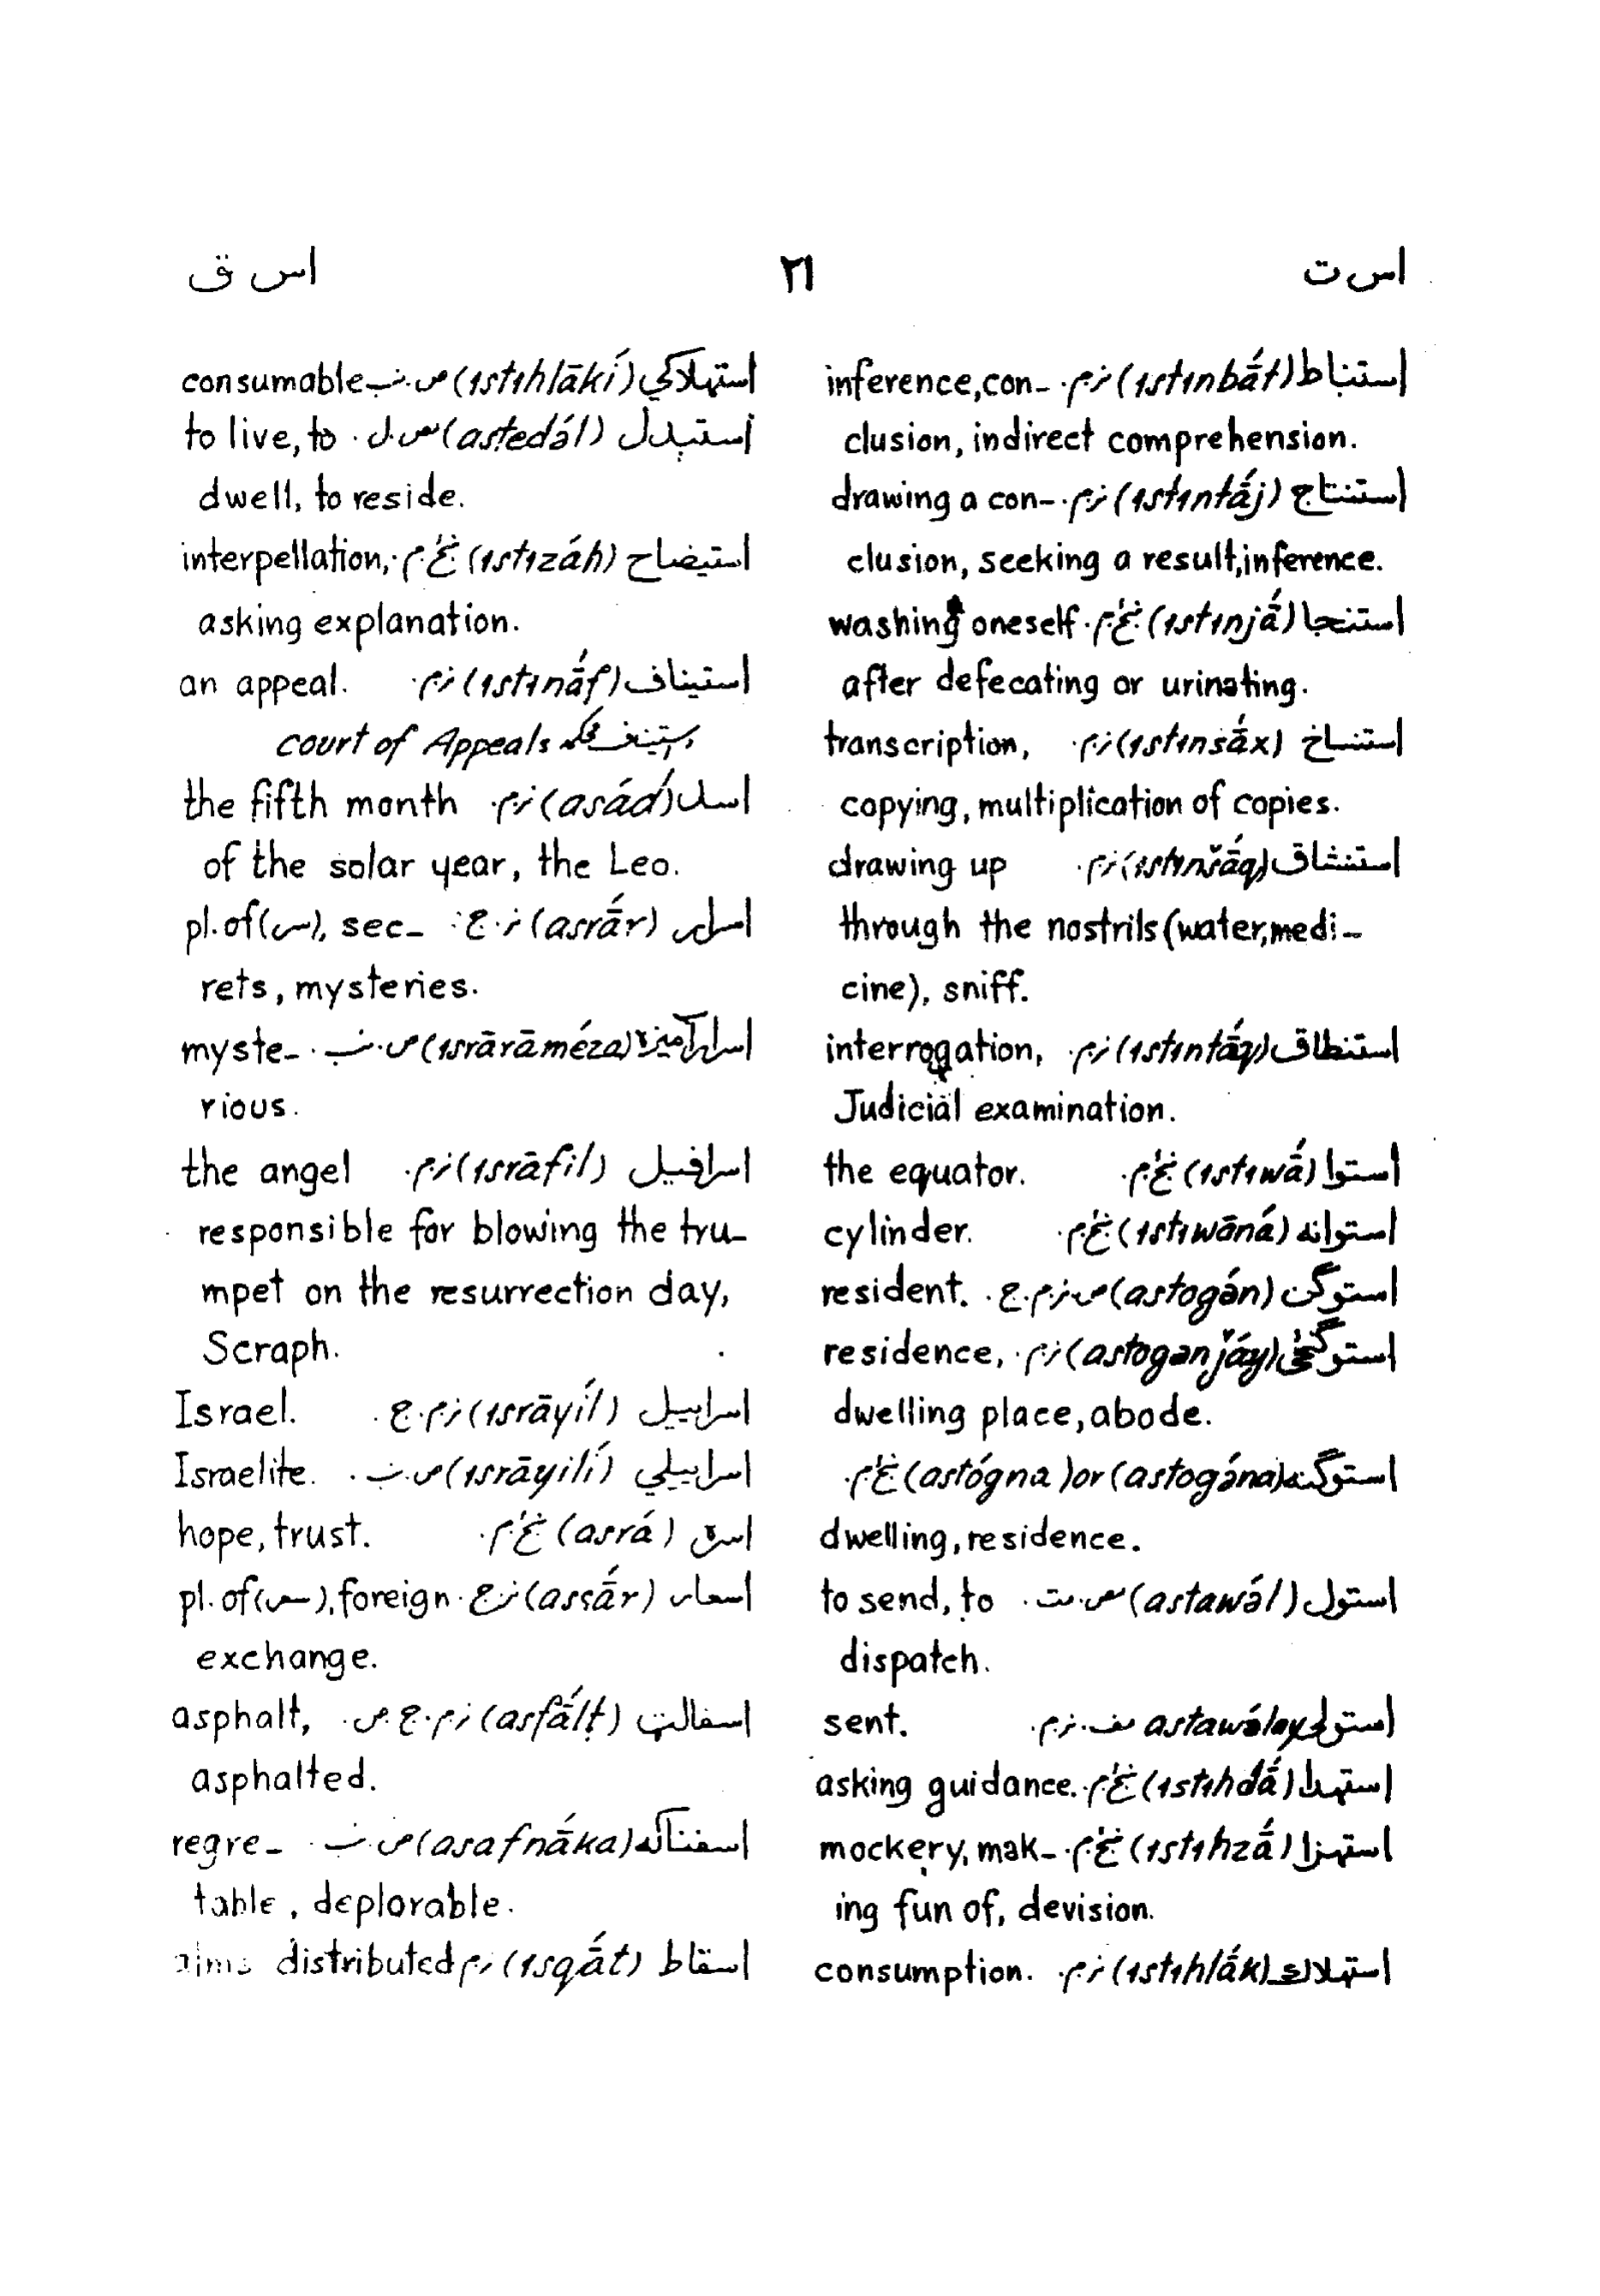 اس ت ۲۱ اس ق
استنباط (ıstınbā́t) نر.م. inference, con-
clusion, indirect comprehension.
استنتاج (ıstıntā́j) نر.م. drawing a con-
clusion, seeking a result, inference.
استنجا (ıstınjā́) ښځ.م. washing oneself
after defecating or urinating.
استنساخ (ıstınsā́x) نر.م. transcription,
copying, multiplication of copies.
استنشاق (ıstınšā́q) نر.م. drawing up
through the nostrils (water, medi-
cine), sniff.
استنطاق (ıstıntā́q) نر.م. interrogation,
Judicial examination.
استوا (ıstıwā́) ښځ.م. the equator.
استوانه (ıstıwāná) ښځ.م. cylinder.
استوګن (astogə́n) ص.نر.م.ج. resident.
استوګنځی (astogənj̆áy) نر.م. residence,
dwelling place, abode.
استوګنه (astógna) or (astogə́na) ښځ.م.
dwelling, residence.
استول (astawə́l) مص.مت. to send, to
dispatch.
استولی astawə́lay مف.نر.م. sent.
استهدا (ıstıhdā́) ښځ.م. asking guidance.
استهزا (ıstıhzā́) ښځ.م. mockery, mak-
ing fun of, devision.
استهلاک (ıstıhlā́k) نر.م. consumption.
استهلاکي (ıstıhlākí) ص.نب. consumable
استېدل (astedə́l) مص.ل. to live, to
dwell, to reside.
استيضاح (ıstızáh) ښځ.م. interpellation,
asking explanation.
استيناف (ıstınā́f) نر.م. an appeal.
court of Appeals
اسد (asád) نر.م. the fifth month
of the solar year, the Leo.
اسرار (asrā́r) نر.ج. pl. of (سر), sec-
rets, mysteries.
اسرارآميزه (ısrārāméza) ص.نب. myste-
rious.
اسرافيل (ısrāfíl) نر.م. the angel
responsible for blowing the tru-
mpet on the resurrection day,
Scraph.
اسراييل (ısrāyíl) نر.م.ج. Israel.
اسراييلي (ısrāyilí) ص.نب. Israelite.
اسره (asrá) ښځ.م. hope, trust.
اسعار (assā́r) نر.ج. pl. of (سعر), foreign
exchange.
اسفالټ (asfā́lṭ) نر.م.ج.ص. asphalt,
asphalted.
اسفناکه (asafnā́ka) ص.نب. regre-
table, deplorable.
اسقاط (ısqā́t) نر.م. alms distributed